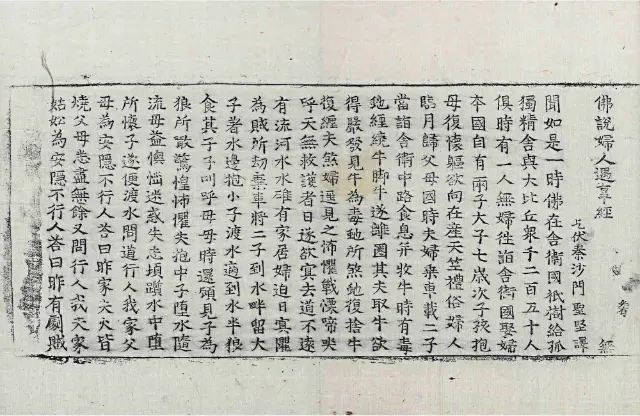 佛說婦人遇辜經
乞伏秦沙門聖堅譯
聞如是一時佛在舍衛國祇樹給孤
獨精舍與大比丘衆千二百五十人
俱時有一人無婦徃詣舍衛國娶婦
夲國自有兩子大子七歲次子孩抱
母復懷軀欲向在産天竺禮俗婦人
臨月歸父母國時夫婦乘車載二子
當詣舍衛中路食息并牧牛時有毒
虵纏繞牛脚牛遂離圈其夫取牛欲
得嚴發見牛為毒虵所煞虵復捨牛
復纏夫煞婦遥見之怖懼戰慄啼哭
呼天無救護者日遂欲冥去道不遠
有流河水水碓有家居婦迫日冥懼
為賊所劫棄車將二子到水畔留大
子著水邊抱小子渡水適到水半狼
食其子子叫呼母母時還顧見子為
狼所噉驚惶怖懼失抱中子墮水隨
流母益懊惱迷惑失志頓躓水中墮
所懷子遂便渡水問道行人我家父
母為安隱不行人答曰昨家失火皆
燒父母悉盡無餘又問行人我夫家
姑妐為安隱不行人答曰昨有劇賊